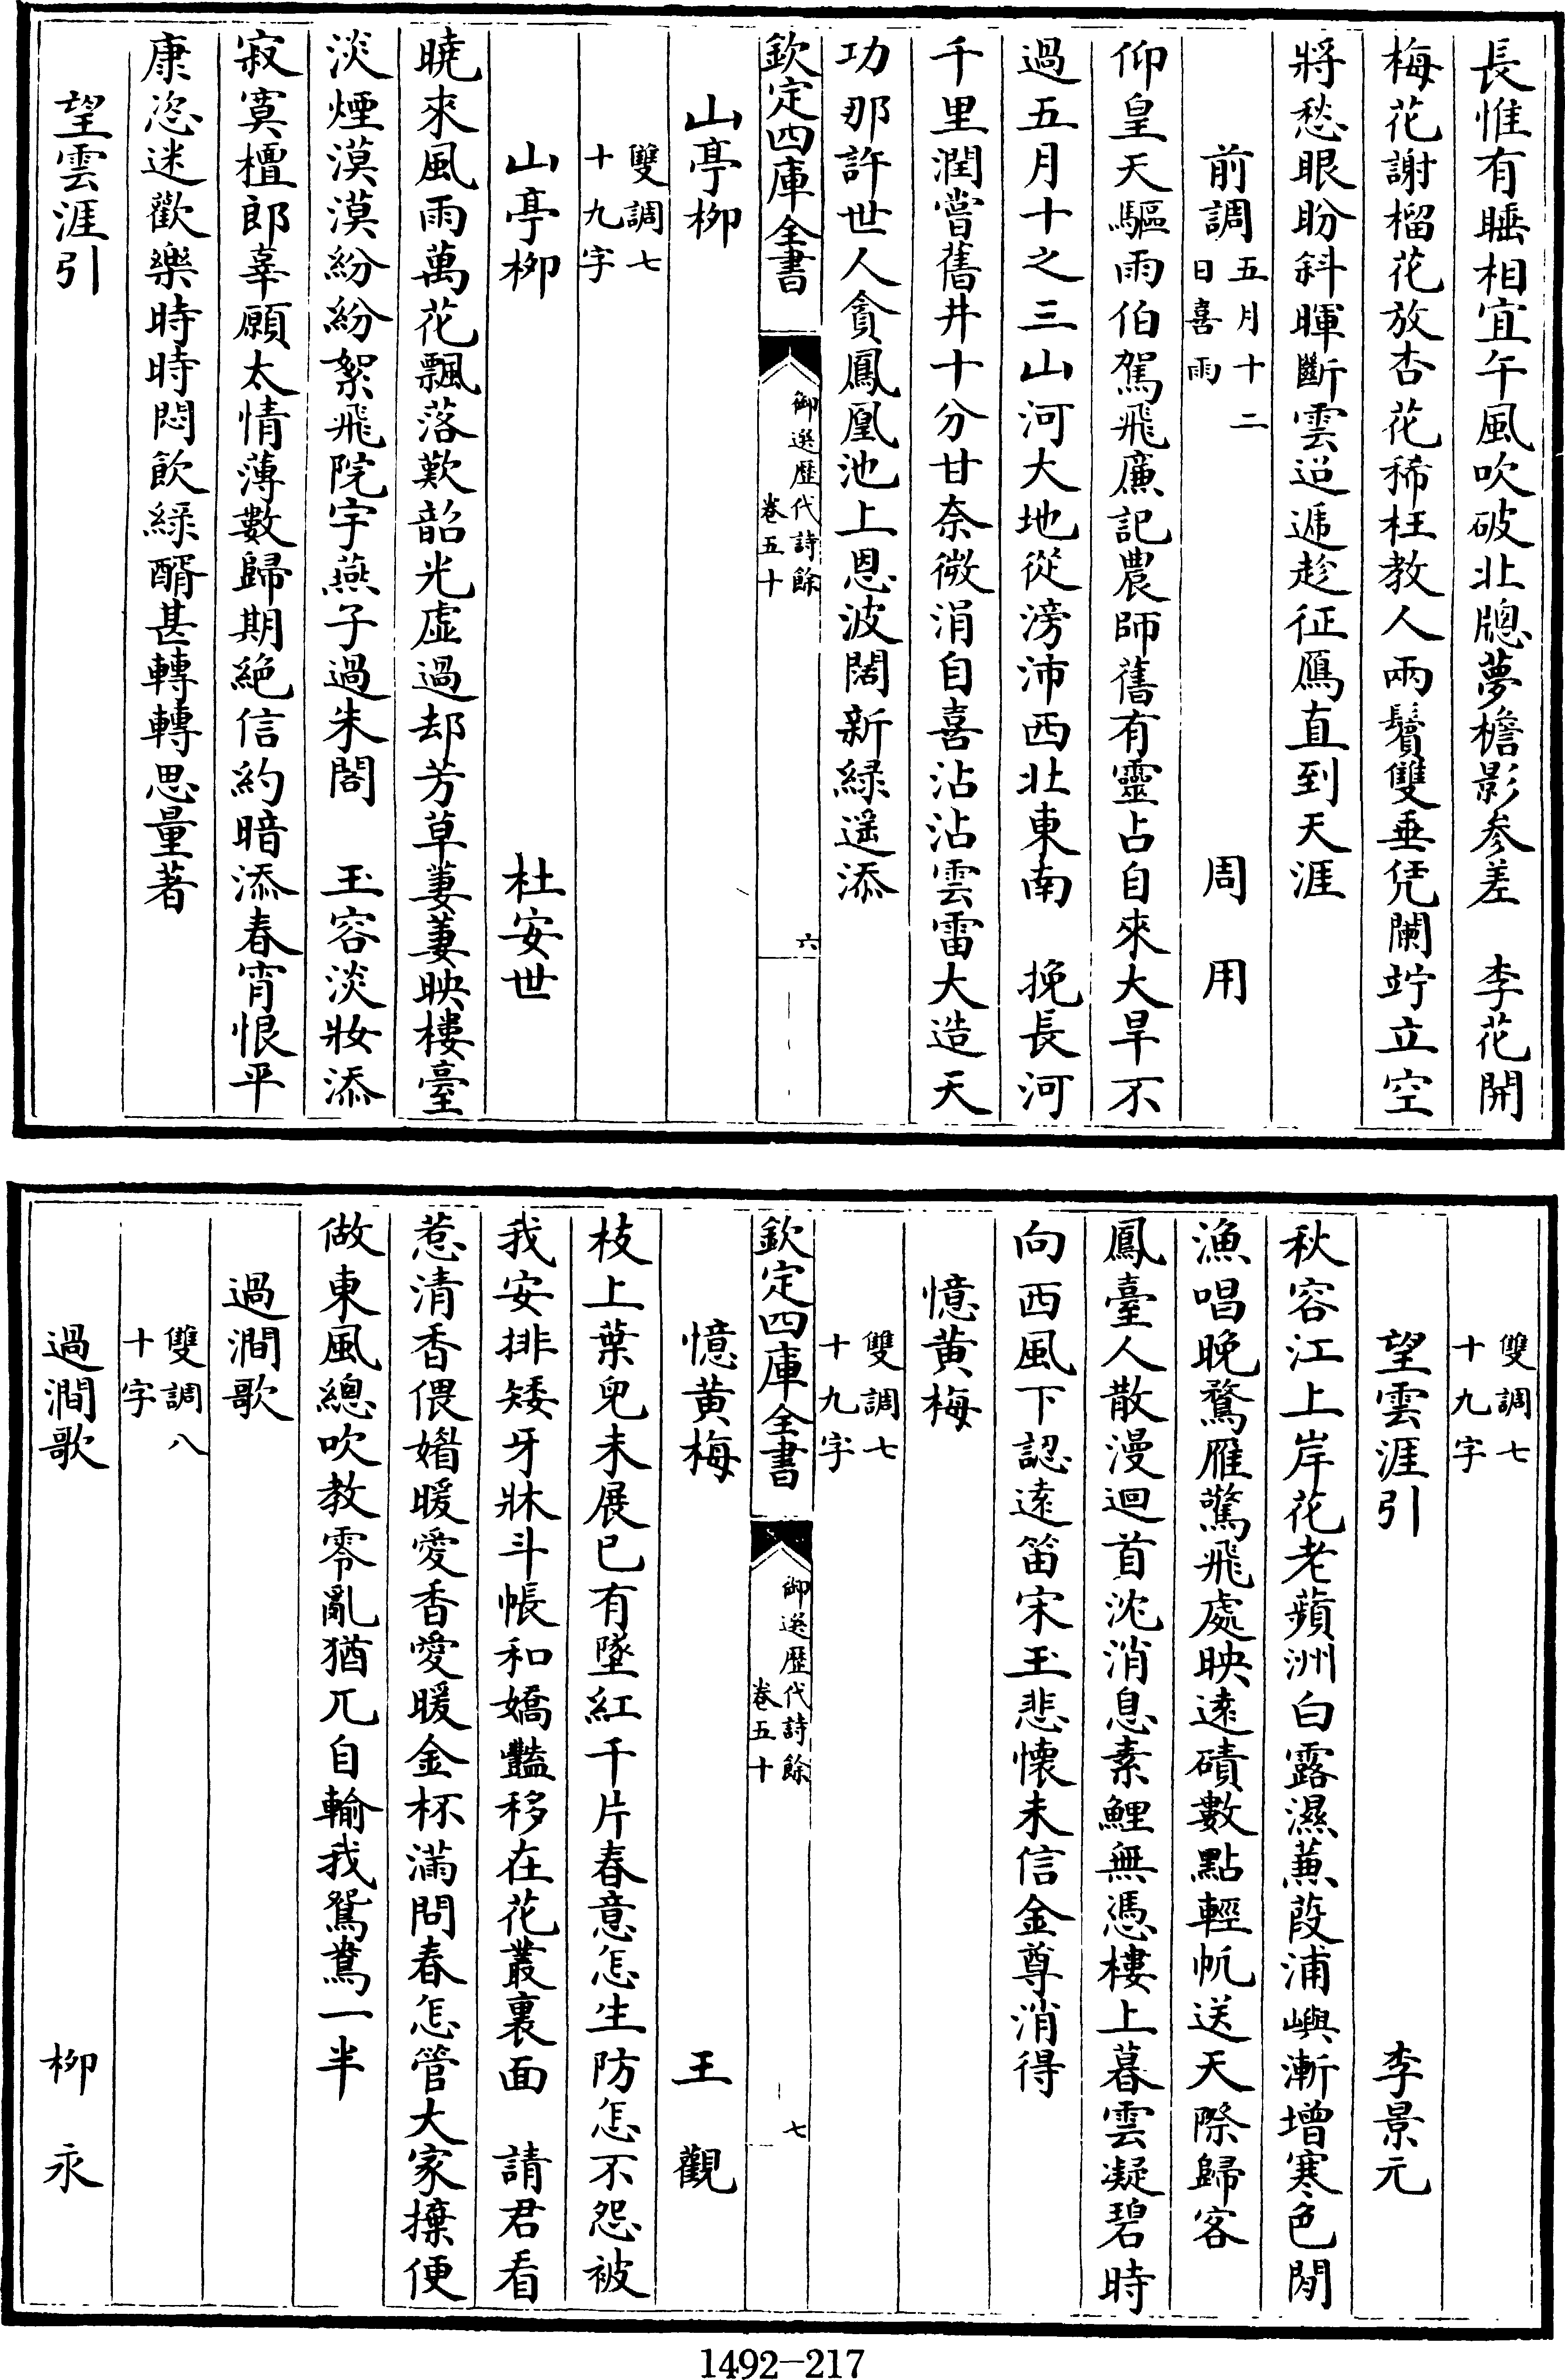 長惟有睡相宜午風吹破北牕夢檐影参差　李花開
梅花謝榴花放杏花稀枉教人兩鬢雙垂凭闌竚立空
將愁眼盼斜暉斷雲迢遞趁征鴈直到天涯
前調五月十二日喜雨　周用
仰皇天驅雨伯駕飛廉記農師舊有靈占自來大旱不
過五月十之三山河大地從滂沛西北東南　挽長河
千里潤嘗舊井十分甘奈微涓自喜沾沾雲雷大造天
功那許世人貪鳳凰池上恩波闊新綠遥添
欽定四庫全書
御選歷代詩餘
卷五十
六
山亭柳
雙調七
十九字
山亭柳　杜安世
曉來風雨萬花飄落歎韶光虛過却芳草萋萋映樓臺
淡煙漠漠紛紛絮飛院宇燕子過朱閣　玉容淡妝添
寂寞檀郎辜願太情薄數歸期絶信約暗添春宵恨平
康恣迷歡樂時時悶飲綠醑甚轉轉思量著
望雲涯引
雙調七
十九字
望雲涯引　李景元
秋容江上岸花老蘋洲白露濕蒹葭浦嶼漸增寒色閒
漁唱晚鶩雁驚飛處映遠磧數點輕帆送天際歸客
鳳臺人散漫迴首沈消息素鯉無憑樓上暮雲凝碧時
向西風下認遠笛宋玉悲懷未信金尊消得
憶黄梅
雙調七
十九字
欽定四庫全書
御選歷代詩餘
卷五十
七
憶黄梅　王觀
枝上葉兒未展已有墜紅千片春意怎生防怎不怨被
我安排矮牙牀斗帳和嬌豔移在花叢裏面　請君看
惹清香偎媚暖愛香愛暖金杯滿問春怎管大家拚便
做東風總吹教零亂猶兀自輸我鴛鴦一半
過澗歌
雙調八
十字
過澗歌　柳永
1492-217